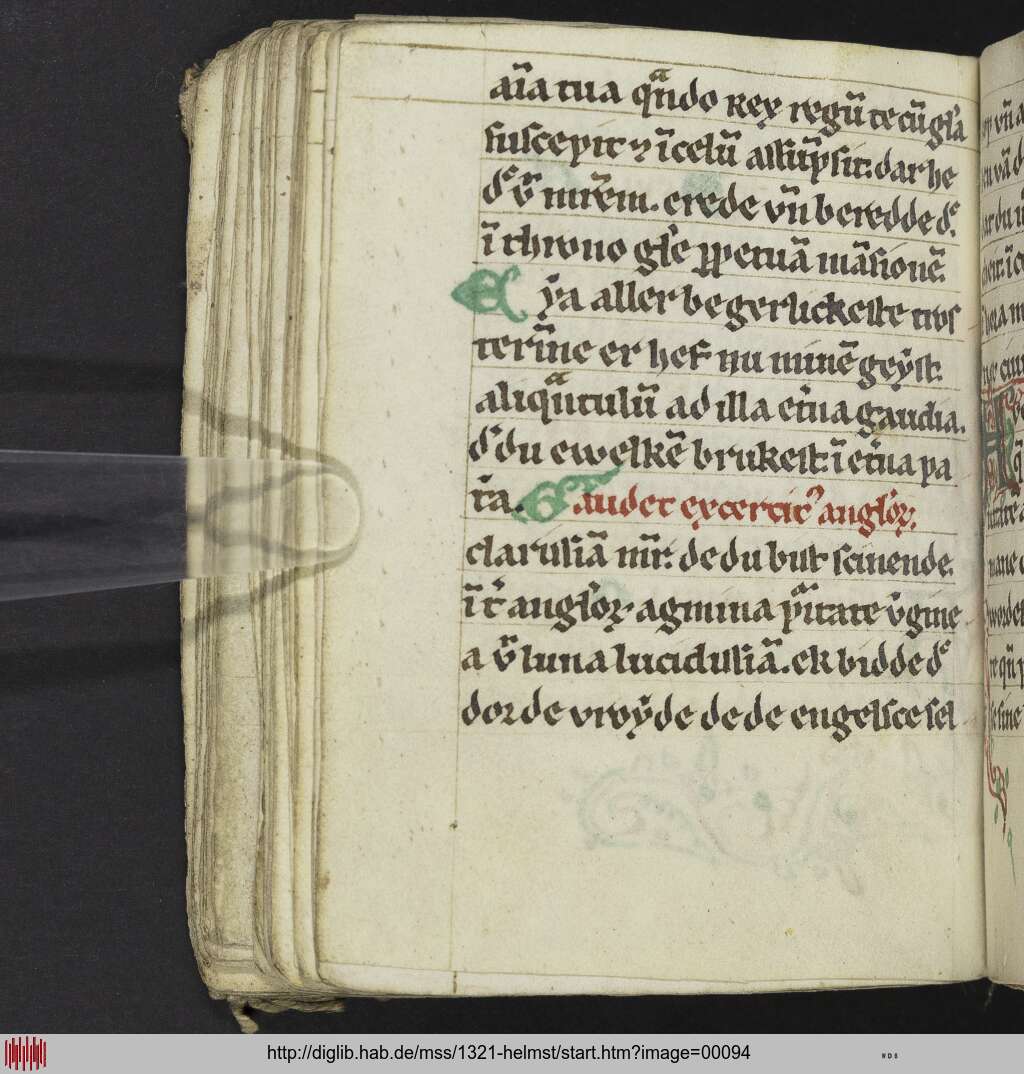 aīa tua qͣndo rex regū tecū gl̓a
suscepit ⁊ ī celū assūpsit: dar he
dͤ vͦ nur̄em. erede vn̄ beredde dͤ.
ī throno gl̓e ꝑpetuā māsionē.
Eẏa aller begerlickeste tivs
termīe er hef nu minē geẏst:
aliqͣntulū ad illa et̓na gaudia.
dͤ du ewelkē brukest: ī et̓na pa
t̓a. Gaudet excercitꝰ anglo̓ꝝ.
clarissīa mr̄: de du bist scinende.
ī t̓ anglo̓ꝝ agmina pͥtate v̓gine
a vͭ luna lucidissīa. ek bidde dͤ
dor de vroẏde de de engelsce sel
http://diglib.hab.de/mss/1321-helmst/start.htm?image=00094